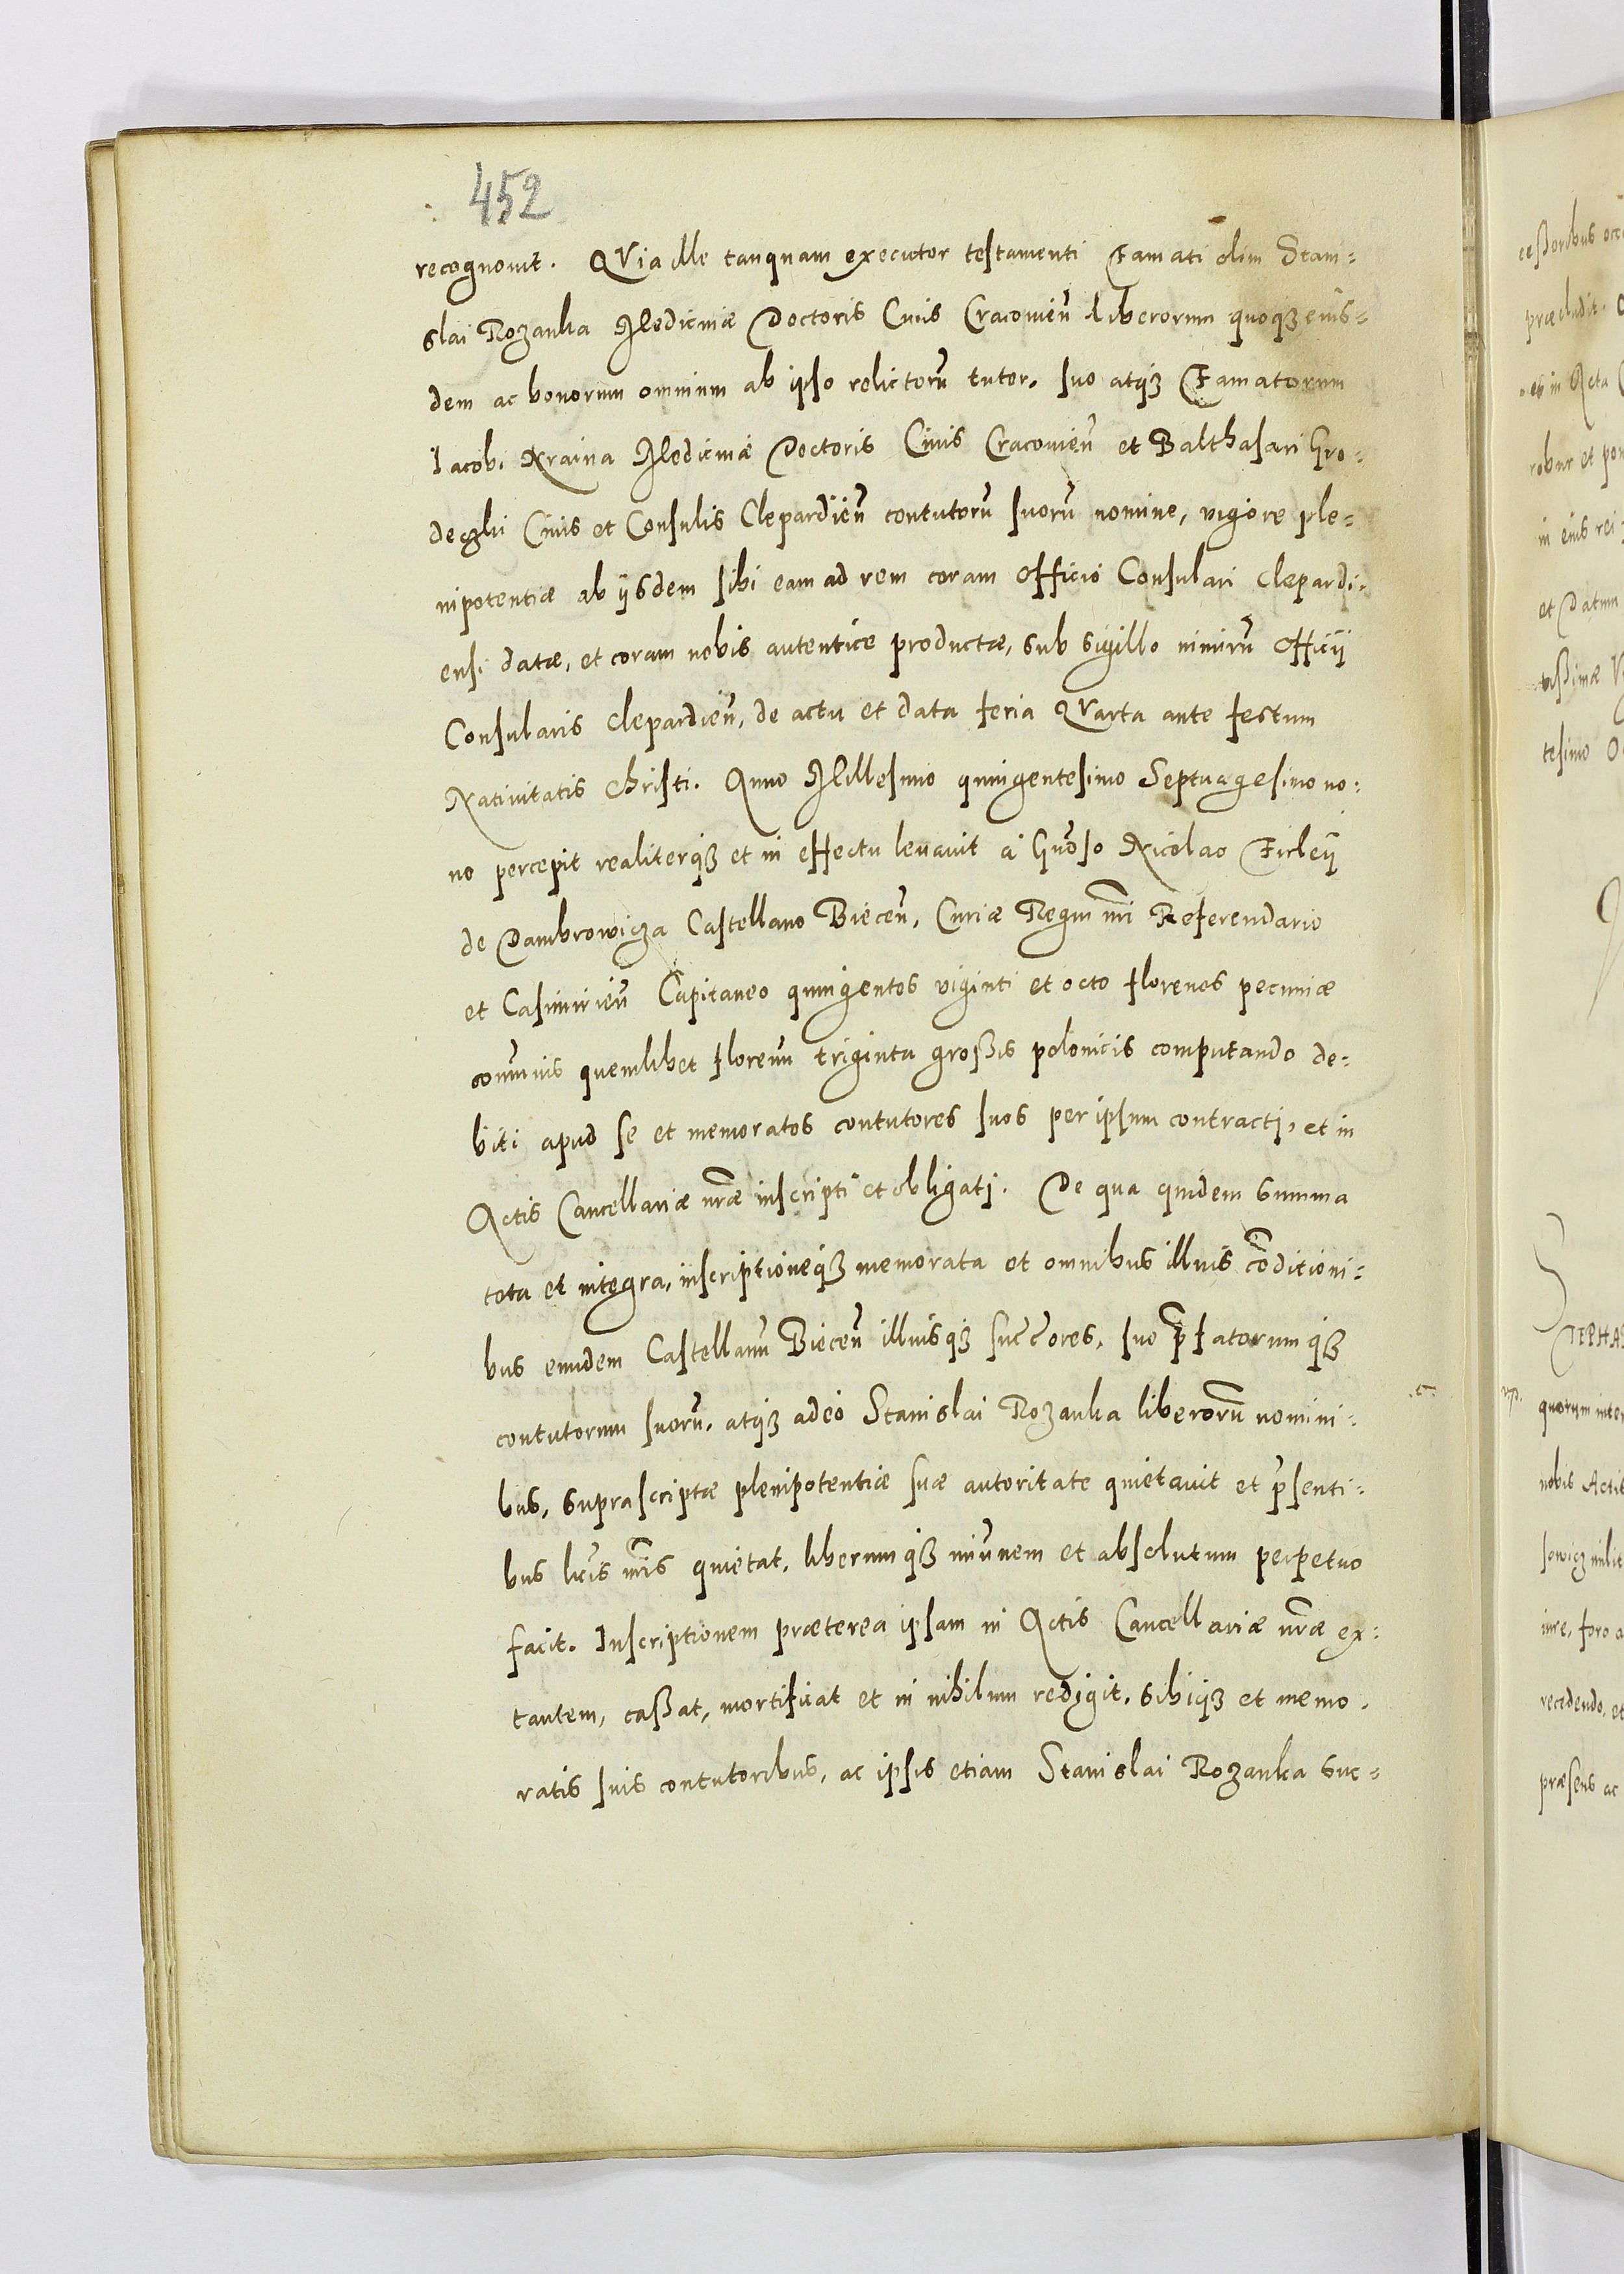 452
recognovit. QVia ille tanquam executor testamenti Famati olim Stani=
slai Rozanka Medicinæ Doctoris Civis Cracovien̄ liberorum quoqꝫ eius=
dem ac bonorum omnium ab ipso relictorū tutor, suo atqꝫ Famatorum
Iacobi Kraina Medicinæ Doctoris Civis Cracovien̄ et Balthasari Gro=
deczki Civis et Consulis Clepardien̄ contutorū suorū nomine, vigore ple=
nipotentiæ ab ijsdem sibi eam ad rem coram Officio Consulari Clepardi=
ensi datæ, et coram nobis autentice productæ, sub sigillo nimirū Officij
Consularis Clepardien̄, de actu et data feria Qvarta ante festum
Nativitatis Christi. Anno Millesimo quingentesimo Septuagesimo no=
no percepit realiterqꝫ et in effectu levavit à Gn̄oso Nicolao Firleij
de Dambrowicza Castellano Biecen̄, Curiæ Regni nr̄i Referendario
et Casimirien̄ Capitaneo quingentos viginti et octo florenos pecuniæ
com̄unis quemlibet florenum triginta großis polonicis computando de=
biti apud se et memoratos contutores suos per ipsum contracti, et in
Actis Cancellariæ nr̄æ inscripti et obligati. De qua quidem summa
tota et integra, inscriptioneqꝫ memorata et omnibus illius cōditioni=
bus eundem Castellanū Biecen̄ illiusqꝫ succ̄ores, suo p̄fatorumqꝫ
contutorum suorū, atqꝫ adeò Stanislai Rozanka liberorū nomini=
bus, suprascriptæ plenipotentiæ suæ autoritate quietavit et p̄senti=
bus lr̄is nr̄is quietat, liberumqꝫ im̄unem et absolutum perpetuo
facit. Inscriptionem præterea ipsam in Actis Cancellariæ nr̄æ ex=
tantem, caßat, mortificat et in nihilum redigit, sibiqꝫ et memo=
ratis suis contutoribus, ac ipsis etiam Stanislai Rozanka suc=
ceßoribus
præcludit.
es in Acta
robur et
in eius rei
et Datum
tesimo
STEPHA
quorum inter
nobis Actis
inre, foro a
recedendo, et
præsens ac